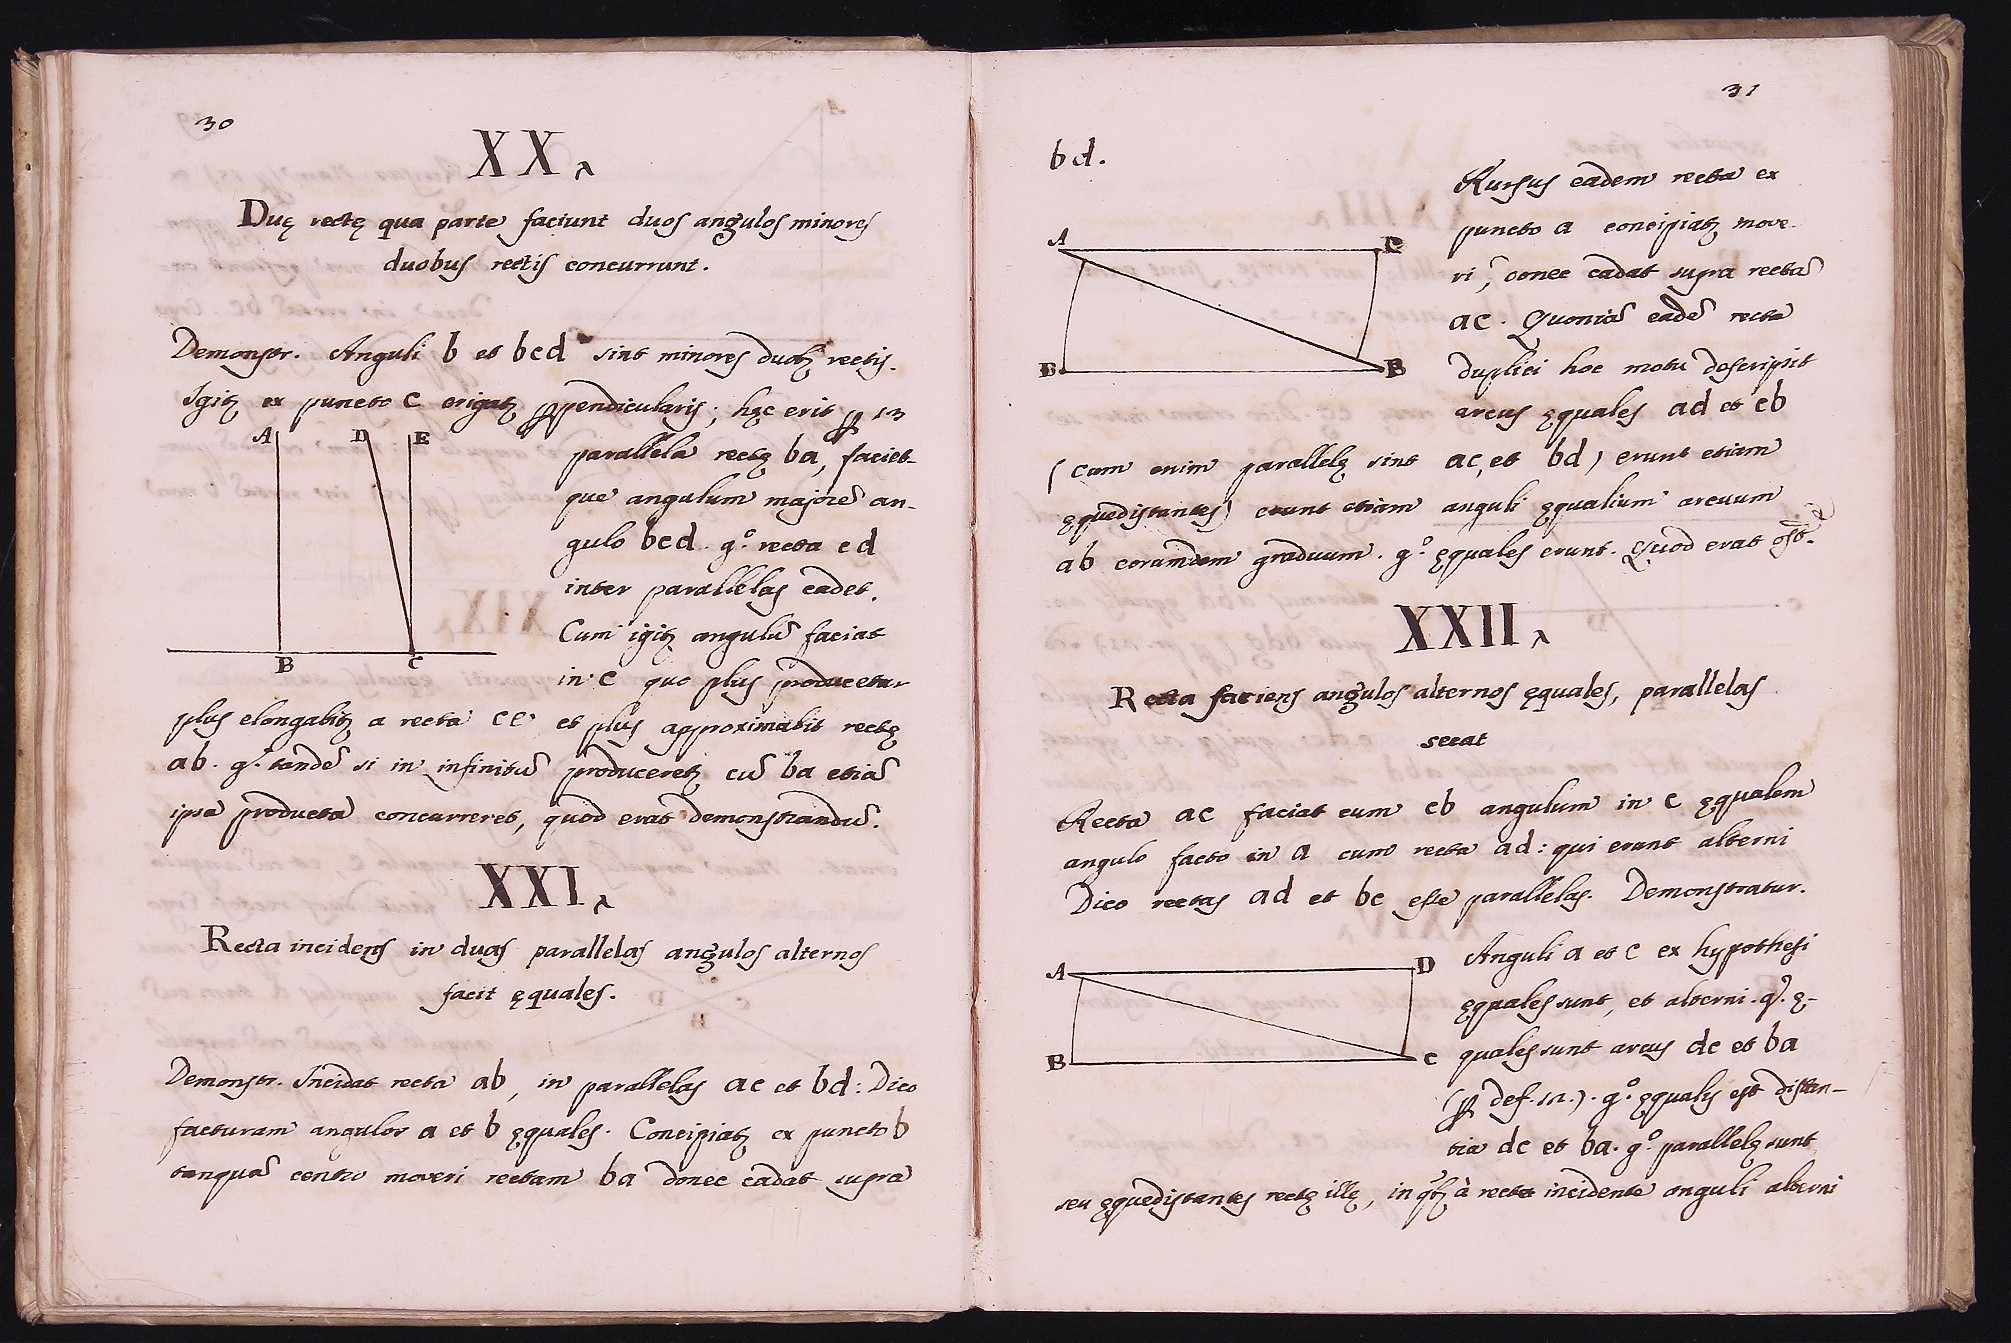 30
XX
Duę rectę qua parte faciunt duos angulos minores
duobus rectis concurrunt.
Demonstr. Anguli b et bcd sint minores duobꝫ rectis.
Igitꝫ ex puncto c erigatꝫ ꝑpendicularis; hęc erit ꝑ 13
A D E
parallela rectę ba, faciet-
que angulum majorē an-
gulo bcd. g.º recta cd
inter parallelas cadet.
Cum igitꝫ angulū faciat
in c quo plus producetur
B C
plus elongabitꝫ a recta ce et plus approximabit rectę
ab. g.º tandē si in infinitū produceretꝫ cū ba etiā
ipsa producta concurreret, quod erat demonstrandū.
XXI
Recta incidens in duas parallelas angulos alternos
facit ęquales.
Demonstr. Incidat recta ab, in parallelas ac et bd: Dico
facturam angulos a et b ęquales. Concipiatꝫ ex puncto b
tanquā centro moveri rectam ba donec cadat supra
31
bd.
Rursus eadem recta ex
puncto a concipiatꝫ move-
ri, donec cadat supra rectā
ac. Quoniā eadē recta
duplici hoc motu descripsit
arcus ęquales ad et cb
A C
B B
(cum enim parallelę sint ac, et bd) erunt etiam
ęquedistantes) erunt etiam anguli ęqualium arcuum
ab eorumdem graduum. g.º ęquales erunt. Quod erat ost.
XXII
Recta faciens angulos alternos ęquales, parallelas
secat
Recta ac faciat cum cb angulum in c ęqualem
angulo facto in a cum recta ad: qui erunt alterni
Dico rectas ad et bc esse parallelas. Demonstratur.
A D
B C
Anguli a et c ex hypothesi
ęquales sunt, et alterni. g.º ę-
quales sunt arcus dc et ba
(ꝑ def. 12.). g.º ęqualis est distan-
tia dc et ba. g.º parallelę sunt
seu ęquedistantes rectę illę, in qbꝫ à recta incidente anguli alterni